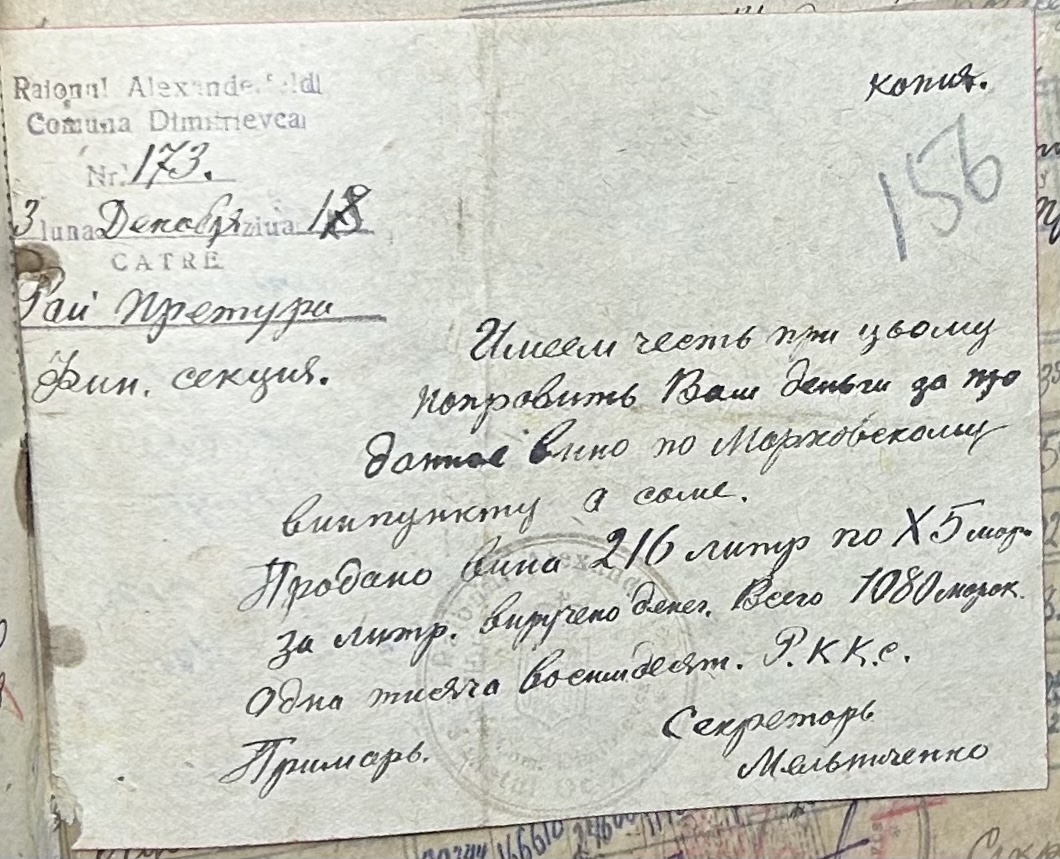 Raionul Alexanderfeld
Comuna Dimitrievca
Nr. 173.
3 luna Декабря ziua
CATRE
Рай Претура
Фин. секция.
копия.
156
Имеем честь при цьому
попровить Ваш деньги за про
данное вино по Марковскому
винпункту а саме.
Продано вина 216 литр по X 5 мар.
за литр. виручено денег. Всего 1080 марок.
Одна тисяча восимдесят. Р.К.К.С.
Примарь.
Секретарь
Мельниченко